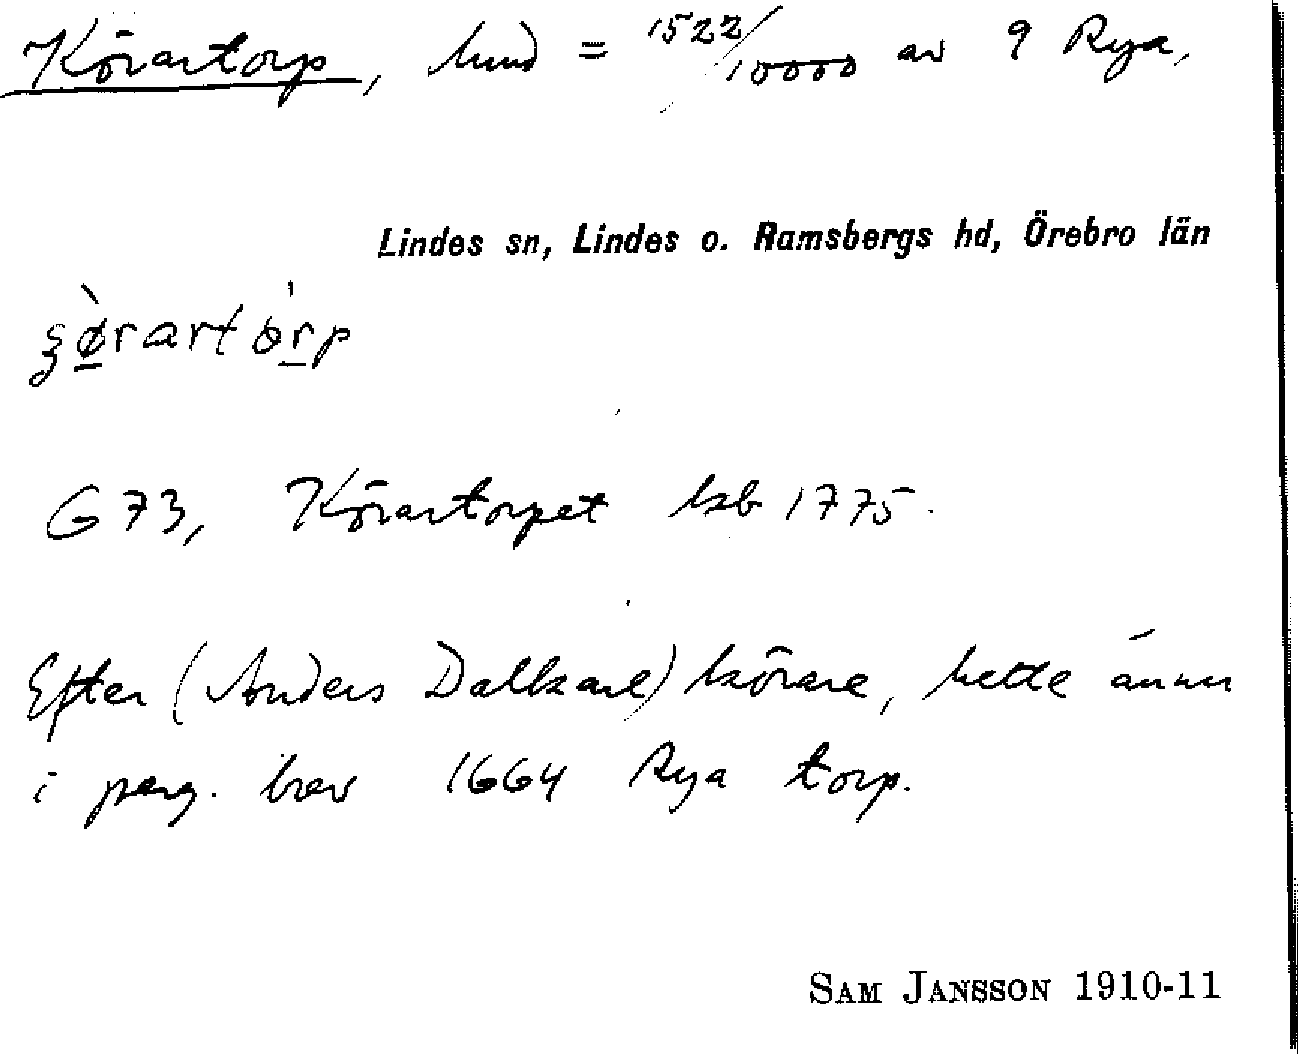 Körartorp, hmd = 1522/10000 av 9 Rya,
Lindes sn, Lindes o. Ramsbergs hd, Örebro län
G 73, Körartorpet hsb 1775.
Efter (Anders Dalkarl) körare, hette ännu
i perg. brev 1664 Rya torp.
SAM JANSSON 1910-11